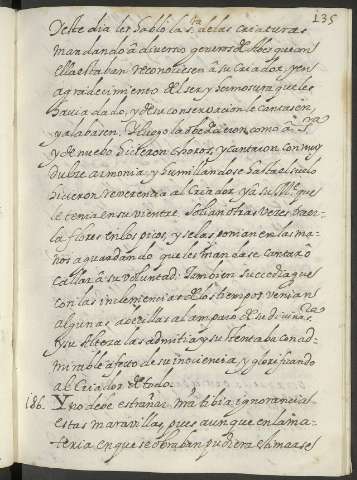 135
Deste dia les habló la S.ra de las criaturas
mandando á diversos generos de Aves que con
ella estaban reconociesen á su Criador, y en
agradecimiento del ser y hermosura que les
havia dado, y de su conservacion le cantasen,
y alabasen. Y luego la obedecieron como á S.ra
y de nuebo hicieron choros, y cantaron con muy
dulce armonia; y humillandose hasta el suelo
hicieron reverencia al Criador, y á su M.e que
le tenia en su vientre. Solian otras vezes traer-
la flores en los picos, y se las ponian en las ma-
nos aguardando que les mandase cantar, ó
callar á su voluntad. Tambien succedia que
con las inclemencias de los tiempos venian
algunas avecillas al amparo de su divina S.ra
y su Alteza las admitia, y sustentaba con ad-
mirable afecto de su inociencia, y glorificando
al Criador de todo.
186. Y no debe estrañar nr̃a tibia ignorancia
estas maravillas, pues aunque en la ma-
teria en que se obraban pudiera llamarse